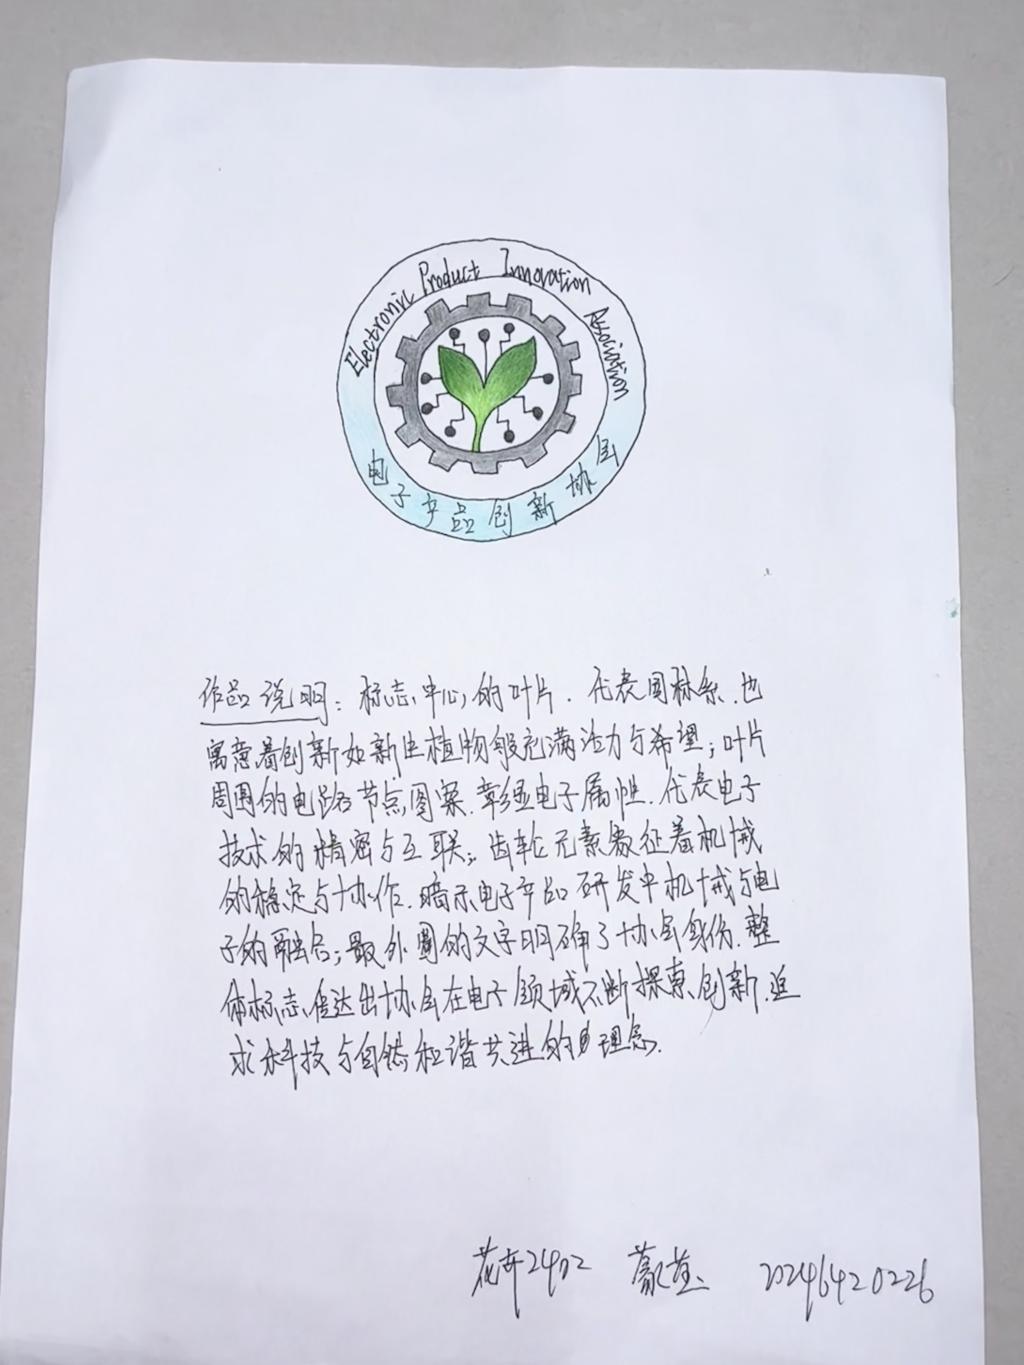 Electronic Product Innovation Association
电子产品创新协会
作品说明：标志中心的叶片，代表园林系，也
寓意着创新如新生植物般充满活力与希望；叶片
周围的电路节点图案，彰显电子属性，代表电子
技术的精密与互联；齿轮元素象征着机械
的稳定与协作，暗示电子产品研发中机械与电
子的融合；最外圈的文字明确了协会身份，整
体标志传达出协会在电子领域不断探索、创新，追
求科技与自然和谐共进的理念。
花卉2402 蒙 20246420226